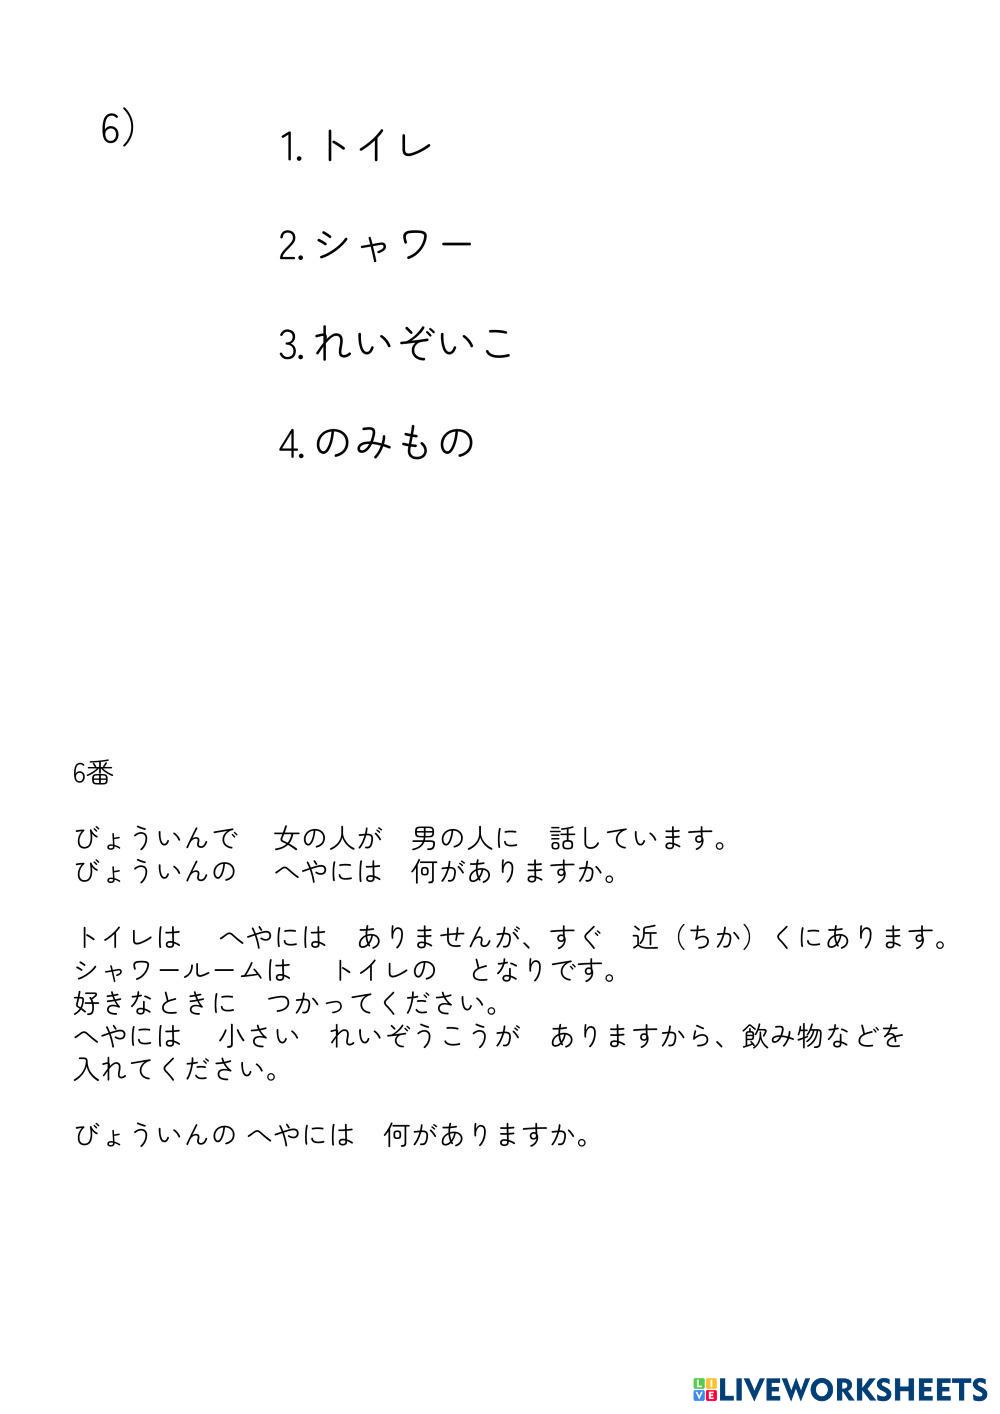 6)
1. トイレ
2. シャワー
3. れいぞいこ
4. のみもの
6番
びょういんで　女の人が　男の人に　話しています。
びょういんの　へやには　何がありますか。
トイレは　へやには　ありませんが、すぐ　近（ちか）くにあります。
シャワールームは　トイレの　となりです。
好きなときに　つかってください。
へやには　小さい　れいぞうこうが　ありますから、飲み物などを
入れてください。
びょういんの へやには　何がありますか。
LIVE LIVEWORKSHEETS